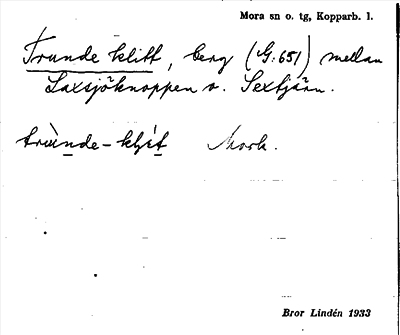 Mora sn o. tg, Kopparb. l.
Trunde klitt, berg (G:651) mellan
Laxsjöknoppen o. Sextjärn.
Mora.
Bror Lindén 1933